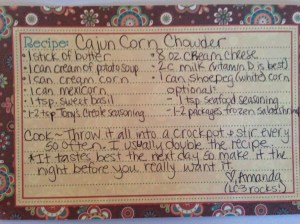 Recipe: Cajun Corn Chowder
• 1 stick of butter
• 1 can cream of potato soup
• 1 can cream corn
• 1 can mexicorn
• 1 tsp. sweet basil
• 1-2 tsp Tony's Creole Seasoning
• 8 oz cream cheese
• 2 c milk (vitamin D is best)
• 1 can shoepeg (white) corn
optional:
- 1 tsp seafood seasoning
- 1-2 packages frozen salad shrimp
Cook ~ Throw it all into a crockpot & stir every
so often. I usually double the recipe.
* It tastes best the next day so make it the
night before you really want it.
♡, Amanda
(LC3 rocks!)